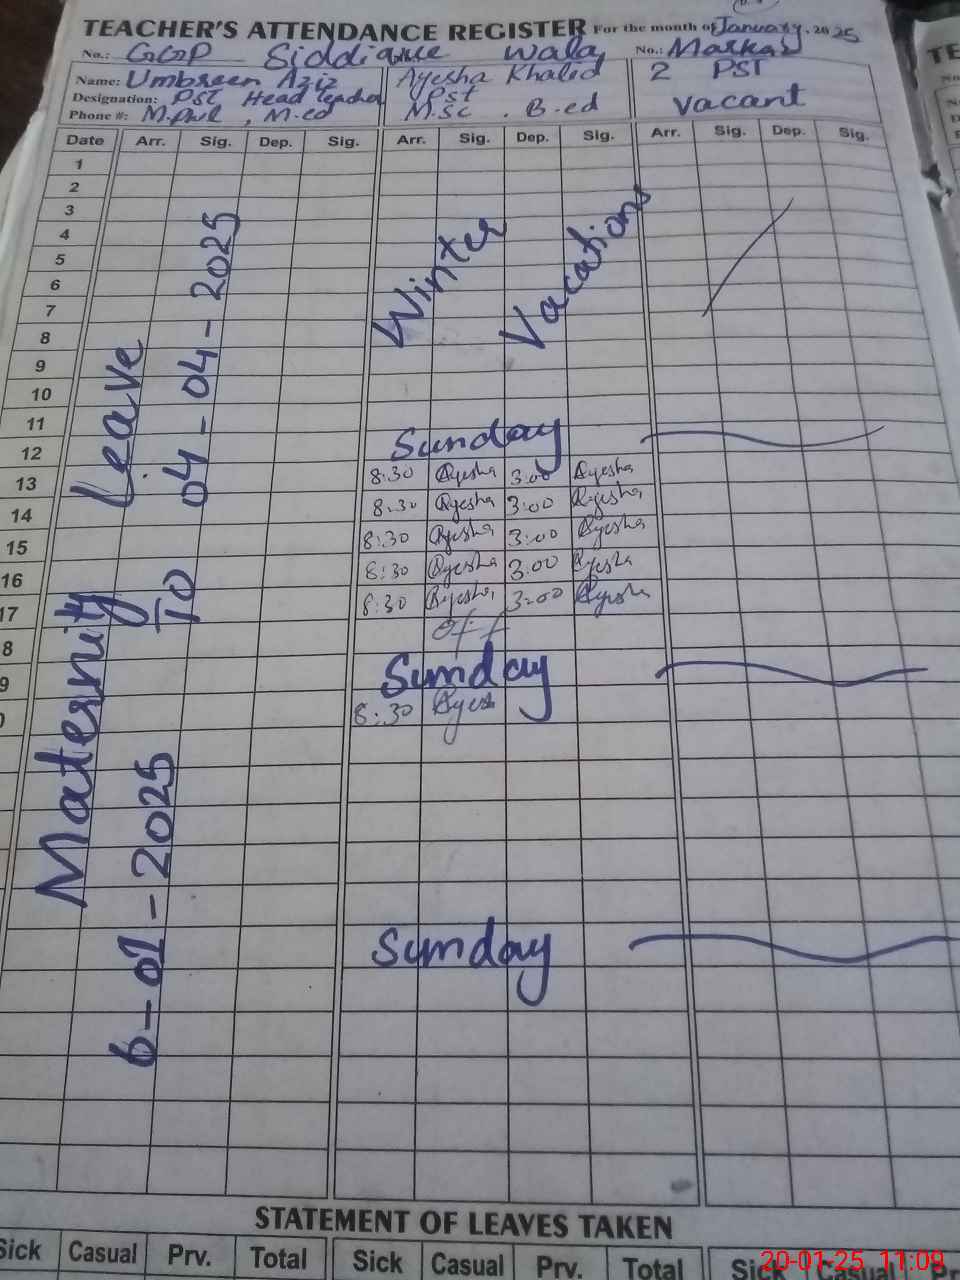 TEACHER'S ATTENDANCE REGISTER For the month of January, 2025
No.: GGP Siddiqane wala No.: Markas
Name: Umbreen Aziz Ayesha Khalid 2 PST
Designation: PST Head teacher PST vacant
Phone #: M.phil , M.ed M.Sc . B.ed
Date Arr. Sig. Dep. Sig. Arr. Sig. Dep. Sig. Arr. Sig. Dep. Sig.
1
2
3
4
5
6
7
8
9
10
11
12 Sunday
13 8:30 Ayesha 3:00 Ayesha
14 8:30 Ayesha 3:00 Ayesha
15 8:30 Ayesha 3:00 Ayesha
16 8:30 Ayesha 3:00 Ayesha
17 8:30 Ayesha 3:00 Ayesha
8 off
9 Sunday
0 8:30 Ayesha
Sunday
Maternity Leave
6-01-2025 to 04-04-2025
Winter Vacations
STATEMENT OF LEAVES TAKEN
Sick Casual Prv. Total Sick Casual Prv. Total Sick Casual Pr
20-01-25 11:09